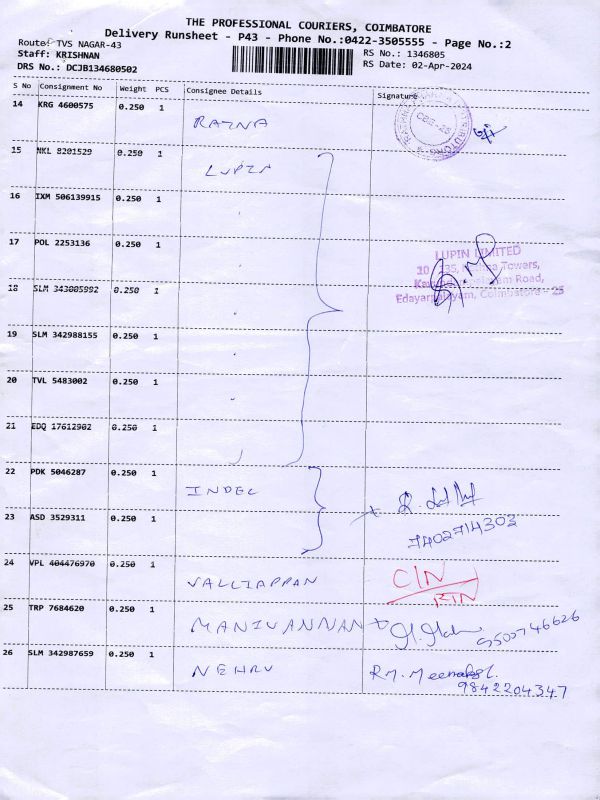 THE PROFESSIONAL COURIERS, COIMBATORE
Delivery Runsheet - P43 - Phone No.:0422-3505555 - Page No.:2
Route: TVS NAGAR-43
RS No.: 1346805
Staff: KRISHNAN
RS Date: 02-Apr-2024
DRS No.: DCJB134680502
S No Consignment No Weight PCS Consignee Details Signature
14 KRG 4600575 0.250 1 RATNA
CBE-25
15 NKL 8201529 0.250 1 LUPIN
16 IXM 506139915 0.250 1
17 POL 2253136 0.250 1
LUPIN LIMITED
Towers,
Road,
Edayarpalayam, Coimbatore - 25
18 SLM 343005992 0.250 1
19 SLM 342988155 0.250 1
20 TVL 5483002 0.250 1
21 EDQ 17612902 0.250 1
22 PDK 5046287 0.250 1 INDEL
23 ASD 3529311 0.250 1
7402714303
24 VPL 404476970 0.250 1 VALLIAPPAN C/N
RTN
25 TRP 7684620 0.250 1 MANIVANNAN 9500746626
26 SLM 342987659 0.250 1 NEHRU R.M. Meenakshi.
9842204347